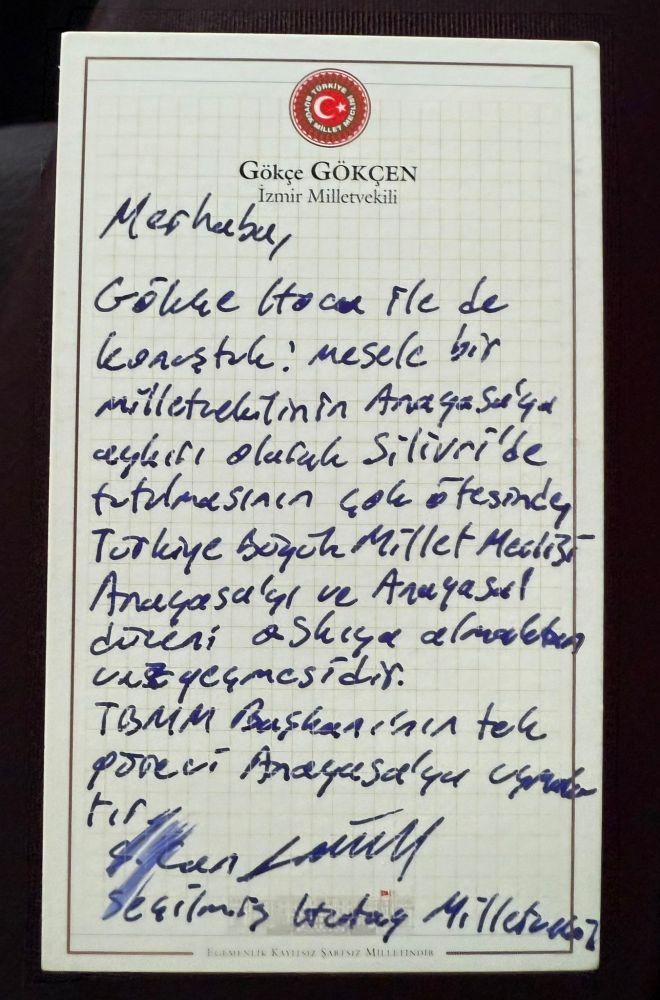 TÜRKİYE BÜYÜK MİLLET MECLİSİ
Gökçe GÖKÇEN
İzmir Milletvekili
Merhaba,
Gökçe Hoca ile de
konuştuk: mesele bir
milletvekilinin Anayasa'ya
aykırı olarak Silivri'de
tutulmasının çok ötesinde,
Türkiye Büyük Millet Meclisi
Anayasa'yı ve Anayasal
düzeni askıya almaktan
vazgeçmesidir.
TBMM Başkanı'nın tek
görevi Anayasa'ya uymak
tır.
Can
Seçilmiş Hatay Milletvekili
EGEMENLİK KAYITSIZ ŞARTSIZ MİLLETİNDİR